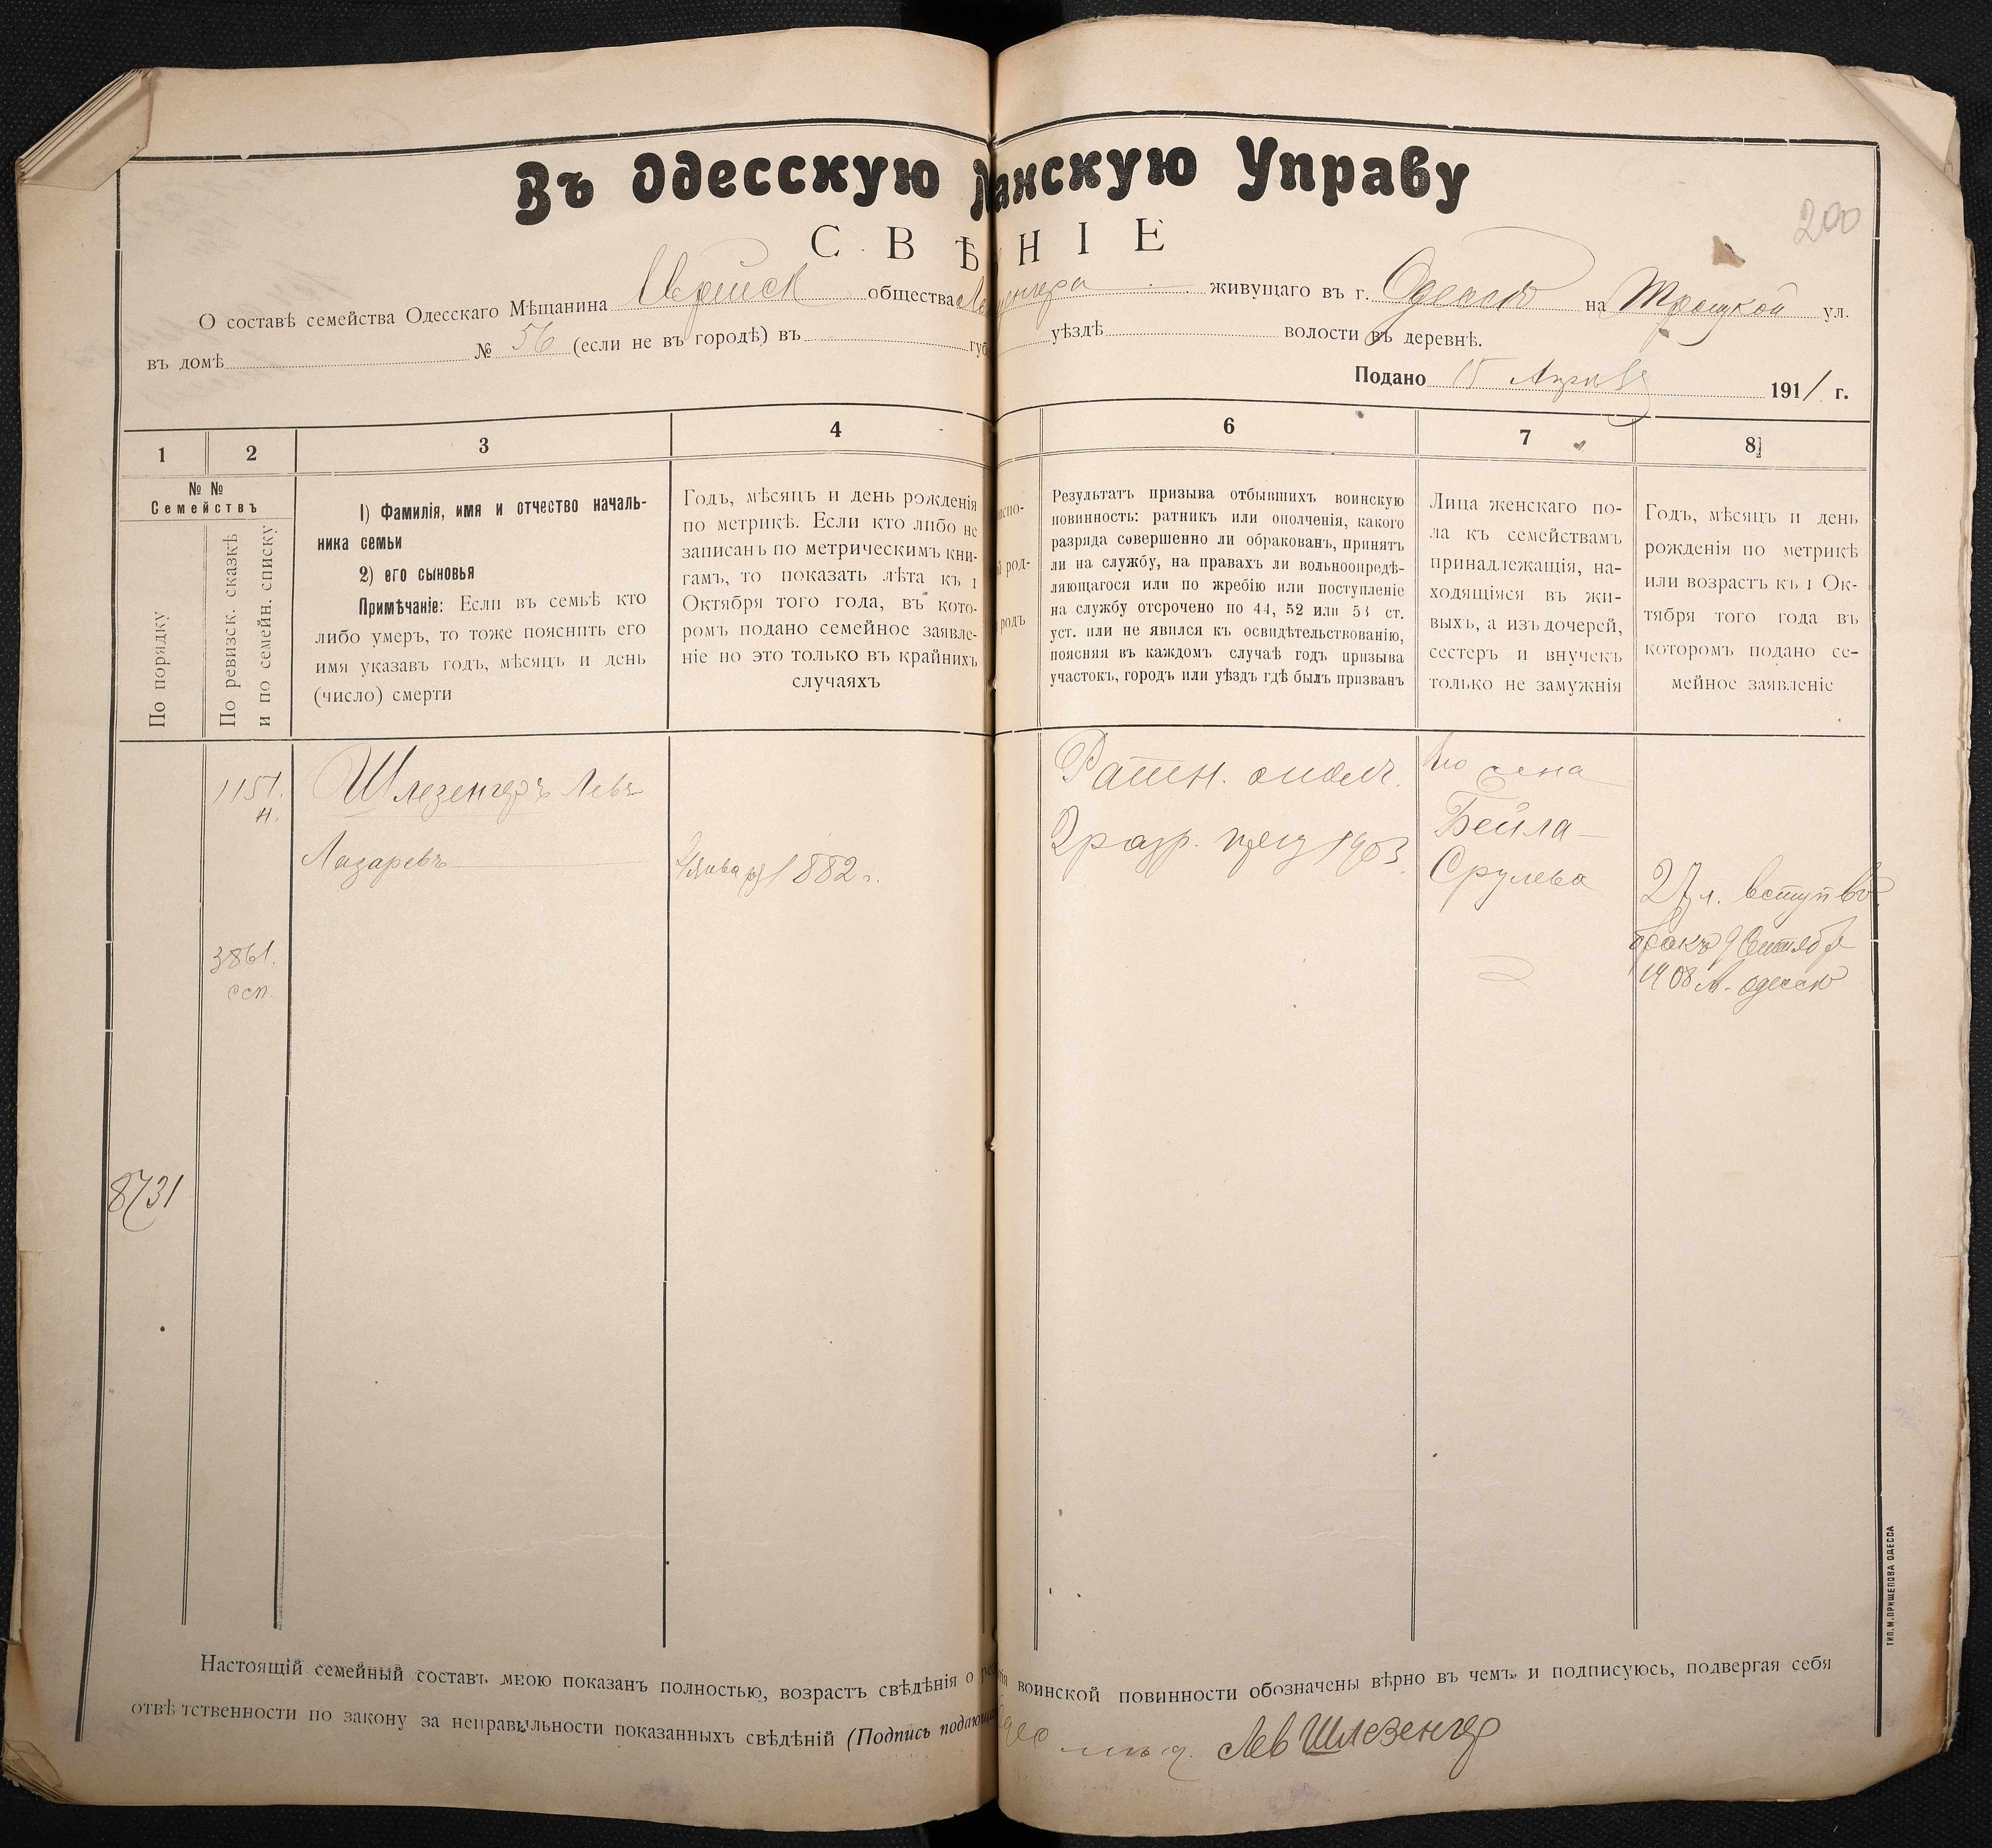 Въ Одесскую анскую Управу
200
СВѢ НІЕ
О составѣ семейства Одесскаго Мѣщанина Еврейск общества живущаго въ г. Одессѣ на Троицкой ул.
въ домѣ № 56 (если не въ городѣ) въ губ уѣздѣ волости въ деревнѣ.
Подано 15 Апрѣля 1911 г.
1 2 3 4 6 7 8
№ №
Семействъ
По порядку
По ревизск. сказкѣ
и по семейн. списку
1) Фамилія, имя и отчество началь-
ника семьи
2) его сыновья
Примѣчаніе: Если въ семьѣ кто
либо умеръ, то тоже пояснить его
имя указавъ годъ, мѣсяцъ и день
(число) смерти
Годъ, мѣсяцъ и день рожденія
по метрикѣ. Если кто либо не
записанъ по метрическимъ кни-
гамъ, то показать лѣта къ 1
Октября того года, въ кото-
ромъ подано семейное заявле-
ніе но это только въ крайнихъ
случаяхъ
испо-
род-
родъ
Результатъ призыва отбывшихъ воинскую
повинность: ратникъ или ополченія, какого
разряда совершенно ли обракованъ, принятъ
ли на службу, на правахъ ли вольноопредѣ-
ляющагося или по жребію или поступленіе
на службу отсрочено по 44, 52 или 53 ст.
уст. или не явился къ освидѣтельствованію,
поясняя въ каждомъ случаѣ годъ призыва
участокъ, городъ или уѣздъ гдѣ былъ призванъ
Лица женскаго по-
ла къ семействамъ
принадлежащія, на-
ходящіяся въ жи-
выхъ, а изъ дочерей,
сестеръ и внучекъ
только не замужнія
Годъ, мѣсяцъ и день
рожденія по метрикѣ
или возрастъ къ 1 Ок-
тября того года въ
которомъ подано се-
мейное заявленіе
1151.
н.
Шлезенгеръ Левъ
Лазаревъ
Января 1882 г.
Ратн. ополч.
2 разр. 1903
Его жена
Бейла
Срулева
27 л. вступ въ
бракъ 9 Сентябр
1908 г. Одессѣ
3861.
ссп.
8731
Настоящій семейный составъ мною показанъ полностью, возрастъ свѣдѣнія о воинской повинности обозначены вѣрно въ чемъ и подписуюсь, подвергая себя
отвѣтственности по закону за неправильности показанныхъ свѣдѣній (Подпись подающ
Лев Шлезенгер
ТИП. М. ПРИЩЕПОВА ОДЕССА